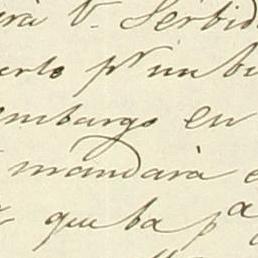 rà V. Serbid
erlo pr un bu
embargo en
mandarà e
que ba pa